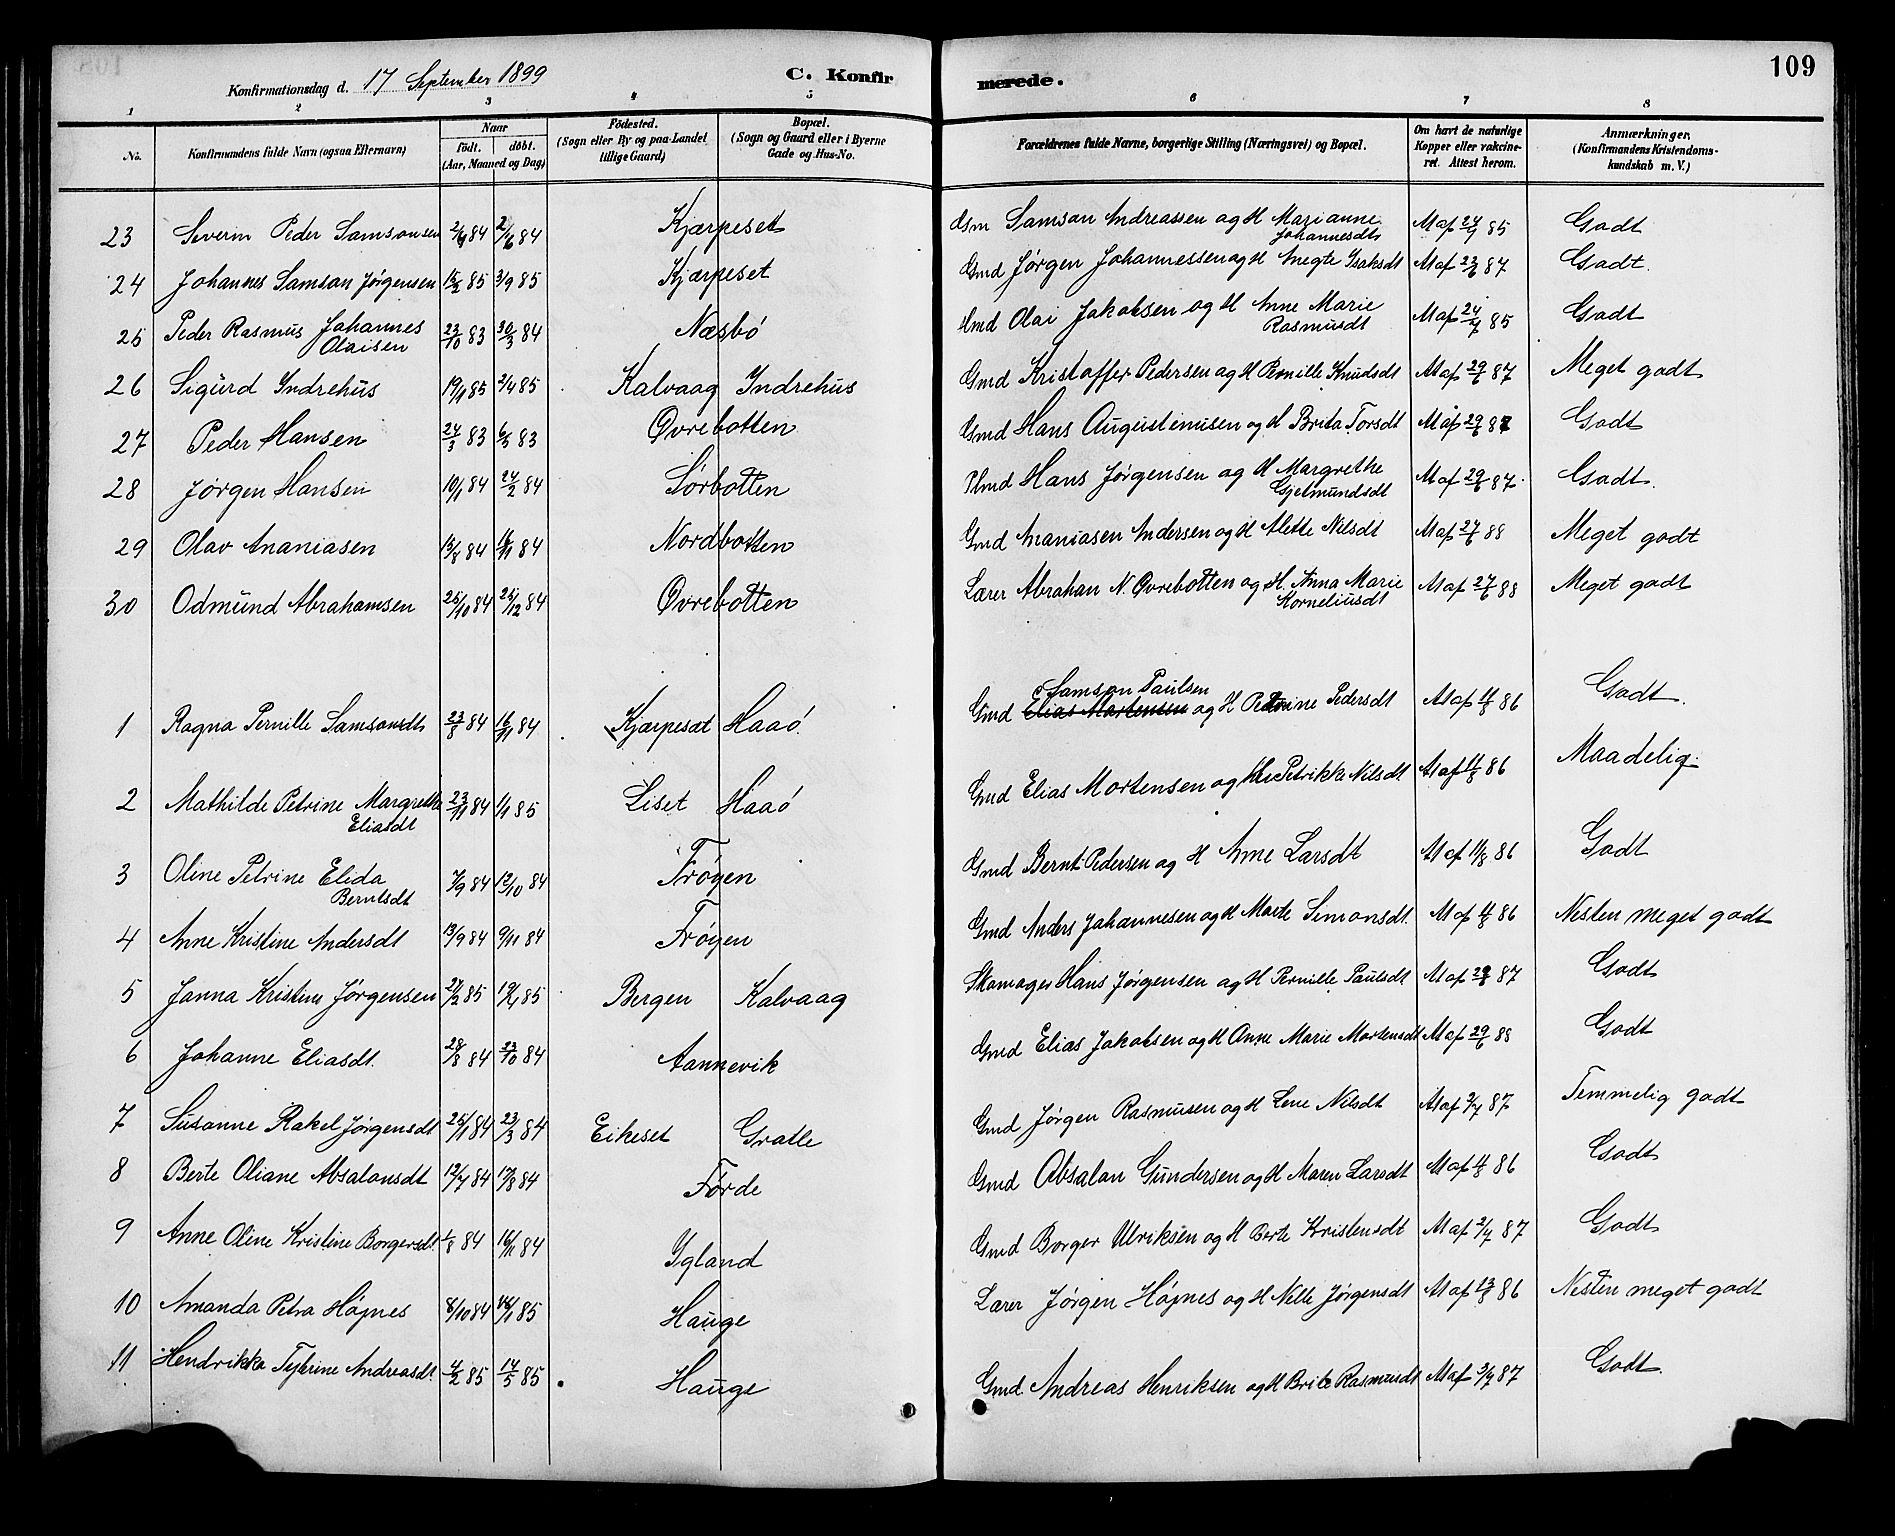 109
Konfirmationsdag d. 17 September 1899
C. Konfirmerede.
1 2 3 4 5 6 7 8
No. Konfirmandens fulde Navn (ogsaa Efternavn) Naar født. døbt. (Aar, Maaned og Dag) Fødested. (Sogn eller By og paa Landet tillige Gaard) Bopæl. (Sogn og Gaard eller i Byerne Gade og Hus-No. Forældrenes fulde Navne, borgerlige Stilling (Næringsvei) og Bopæl. Om havt de naturlige Kopper eller vakcineret. Attest herom. Anmærkninger, (Konfirmandens Kristendomskundskab m. V.)
23 Severin Peder Samsonsen 84 2/6 84 Kjærpeset Gm Samson Andreassen og H Marianne Johannesdt M af 85 Godt
24 Johannes Samson Jørgensen 15/2 85 3/9 85 Kjærpeset Gmd Jørgen Johannessen og H Isaksdt M af 23/6 87 Godt.
25 Peder Rasmus Johannes Olaisen 23/10 83 30/3 84 Næsbø Hmd Olai Jakobsen og H Anne Marie Rasmusdt M af 85 Godt
26 Sigurd Indrehus 19/1 85 2/4 85 Kalvaag Indrehus Gmd Kristoffer Pedersen og H Pernille Knudsdt M af 29/6 87 Meget godt
27 Peder Hansen 24/3 83 6/5 83 Øvrebotten Gmd Hans Augustinusen og H Brita Torsdt M af 29/6 87 Godt
28 Jørgen Hansen 10/1 84 24/2 84 Sørbotten Plmd Hans Jørgensen og H Margrethe Gjelmundsdt M af 29/6 87. Godt.
29 Olav Ananiasen 84 16/11 84 Nordbotten Gmd Ananiasen Andersen og H Alette Nilsdt M af 27/6 88 Meget godt
30 Odmund Abrahamsen 25/10 84 25/12 84 Øvrebotten Lærer Abrahan N. Øvrebotten og H. Anna Marie Korneliusdt M af 27/6 88 Meget godt
1 Ragna Pernille Samsonsdt 23/8 84 16/11 84 Kjærpeset Haaø Gmd Elias Mortensen Samson Paulsen og H Petrine Pedersdt M af 11/8 86 Godt.
2 Mathilde Petrine Margrethe Eliasdt 23/11 84 1/1 85 Liset Haaø Gmd Elias Mortensen og Petrikke Nilsdt M af 11/8 86 Maadelig.
3 Oline Petrine Elida Berntsdt 7/9 84 12/10 84 Frøyen Gmd Bernt Pedersen og H Anne Larsdt M af 11/8 86 Godt
4 Anne Kristine Andersdt 13/9 84 9/11 84 Frøyen Gmd Anders Johannesen og H Marte Simonsdt. M af 11/8 86 Nesten meget godt
5 Janna Kristine Jørgensen 85 85 Bergen Kalvaag Skomager Hans Jørgensen og H Pernille Paulsdt M af 87 Godt
6 Johanne Eliasdt. 28/8 84 23/10 84 Aannevik Gmd Elias Jakobsen og H Anne Marie Mortensdt M af 29/6 88 Godt
7 Susanne Rakel Jørgensdt 25/1 84 23/3 84 Eikeset Gratle Gmd Jørgen Rasmusen og H Lene Nilsdt M af 2/7 87 Temmelig godt
8 Berte Oliane Absalonsdt 12/7 84 17/8 84 Førde Gmd Absalon Gundersen og H Maren Larsdt M af 11/8 86 Godt
9 Anne Oline Kristine Borgersdt. 84 16/11 84 Ygland Gmd Borger Ulriksen og H Berte Kristensdt M af 2/7 87 Godt
10 Amanda Petra Højnes 8/10 84 85 Hauge Lærer Jørgen Højnes og H Nelle Jørgensdt M af 13/8 86 Nesten meget godt
11 Hendrikka Andreasdt. 4/2 85 14/5 85 Hauge Gmd. Andreas Henriksen og H Brite Rasmusdt M af 3/7 87 Godt.